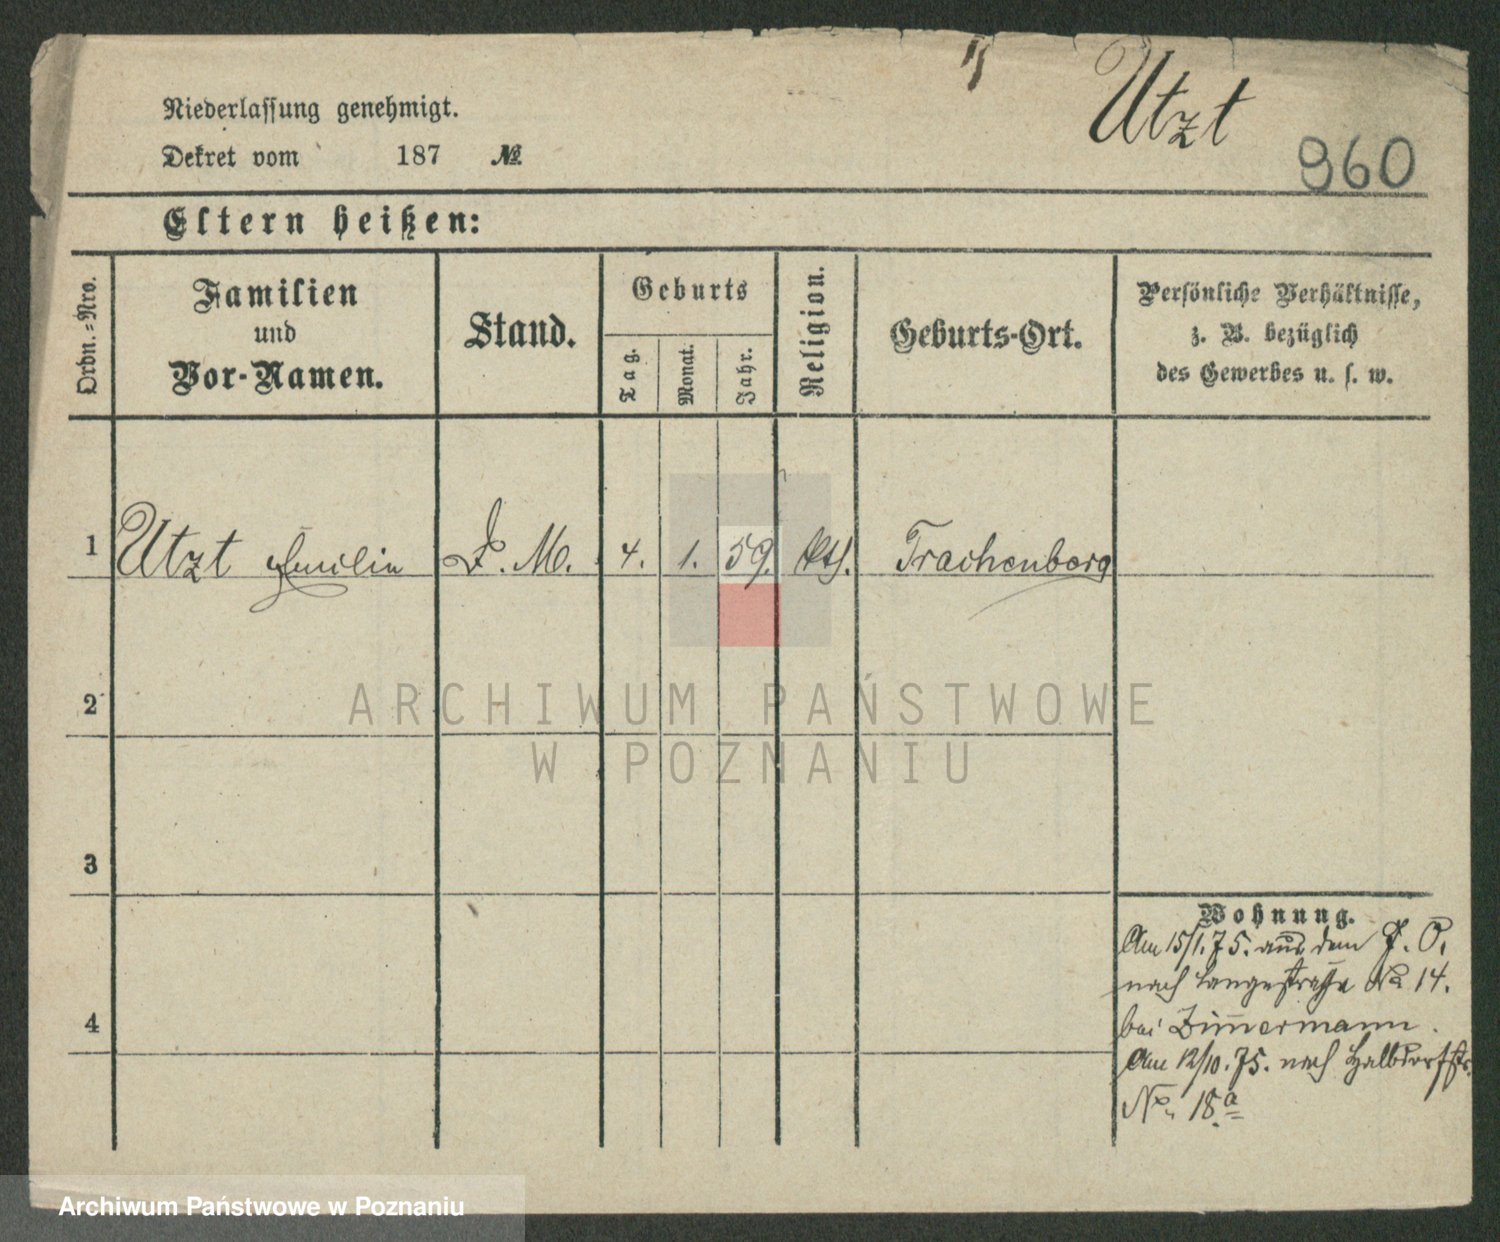 Utzt
960
Niederlassung genehmigt.
Dekret vom 187 №
Eltern heißen:
Ordn.-Nro.
Familien
und
Vor-Namen.
Stand.
Geburts
Tag.
Monat.
Jahr.
Religion.
Geburts-Ort.
Persönliche Verhältnisse,
z. B. bezüglich
des Gewerbes u. s. w.
1 Utzt Emilie D. M. 4. 1. 59. kth. Trachenberg
2
3
4
Wohnung.
Am 15/1.75. aus dem P. O.
nach Langestraße No 14.
bei Zimmermann.
Am 12/10.75. nach Halbdorfstr.
No. 18.a
ARCHIWUM PAŃSTWOWE
W POZNANIU
Archiwum Państwowe w Poznaniu